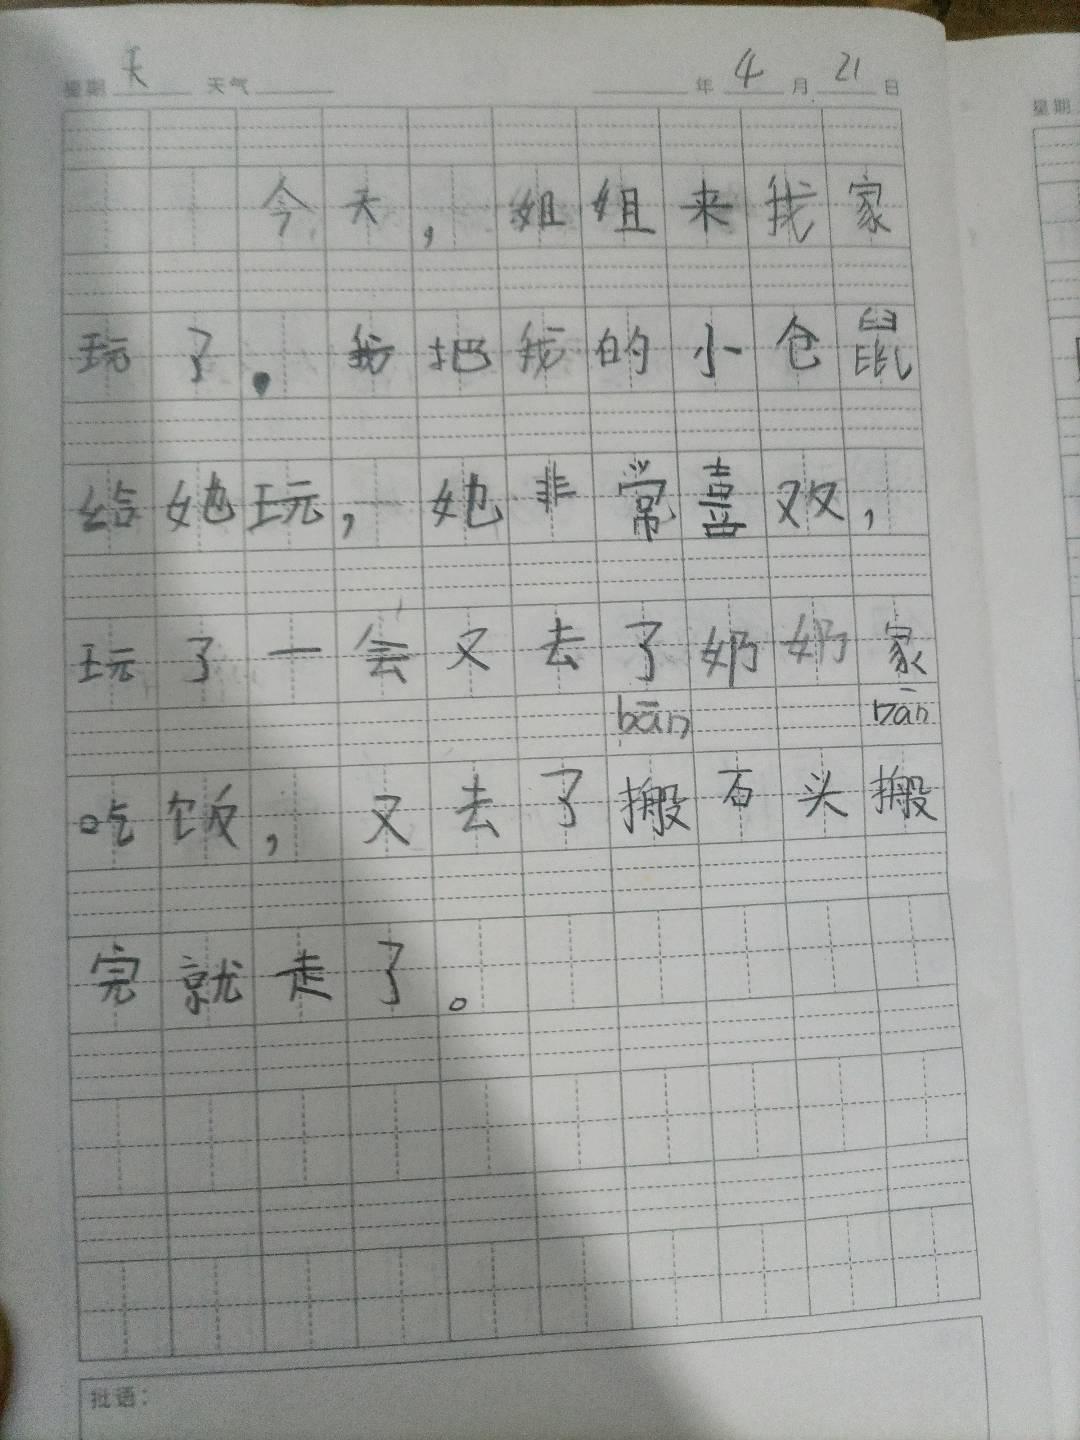 星期 天 天气 年 4 月 21 日
星期
今天，姐姐来我家
玩了。我把我的小仓鼠
给她玩，她非常喜欢，
玩了一会又去了奶奶家
bān bān
吃饭，又去了搬石头搬
完就走了。
批语：